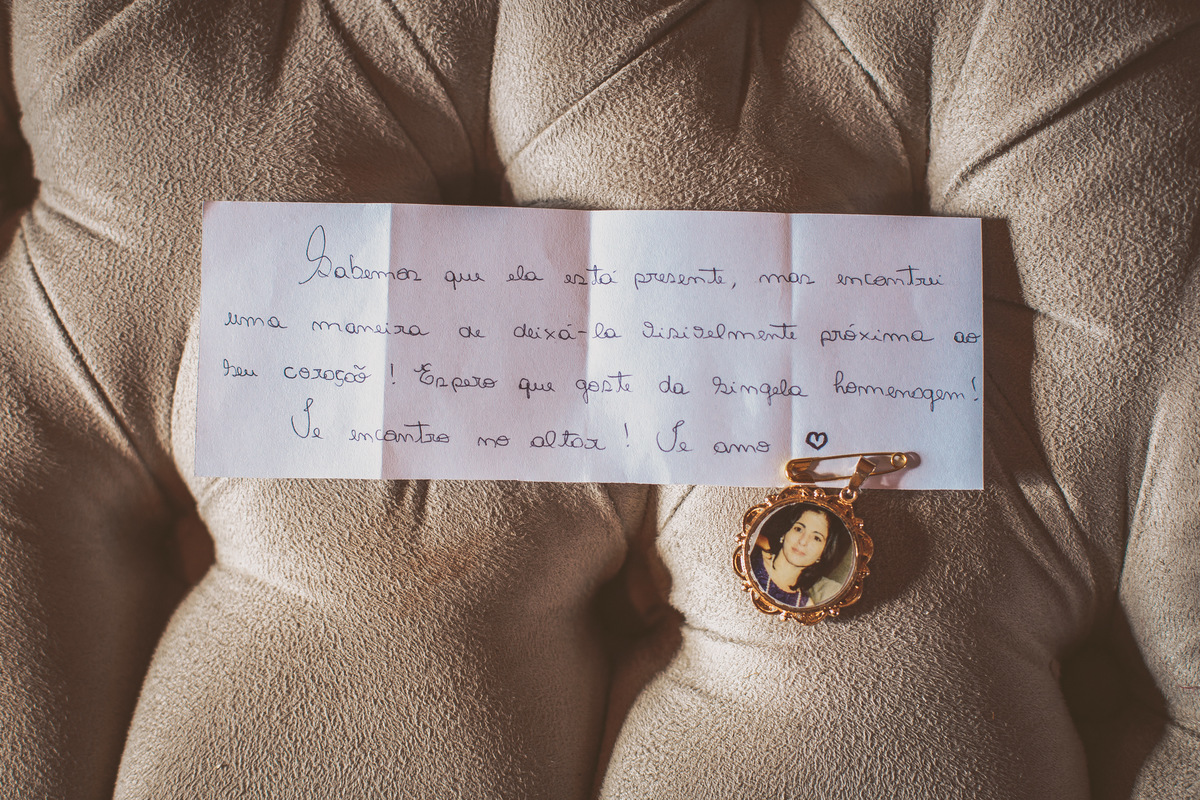 Sabemos que ela está presente, mas encontrei
uma maneira de deixá-la visivelmente próxima ao
seu coração! Espero que goste da singela homenagem!
Te encontro no altar! Te amo ♡